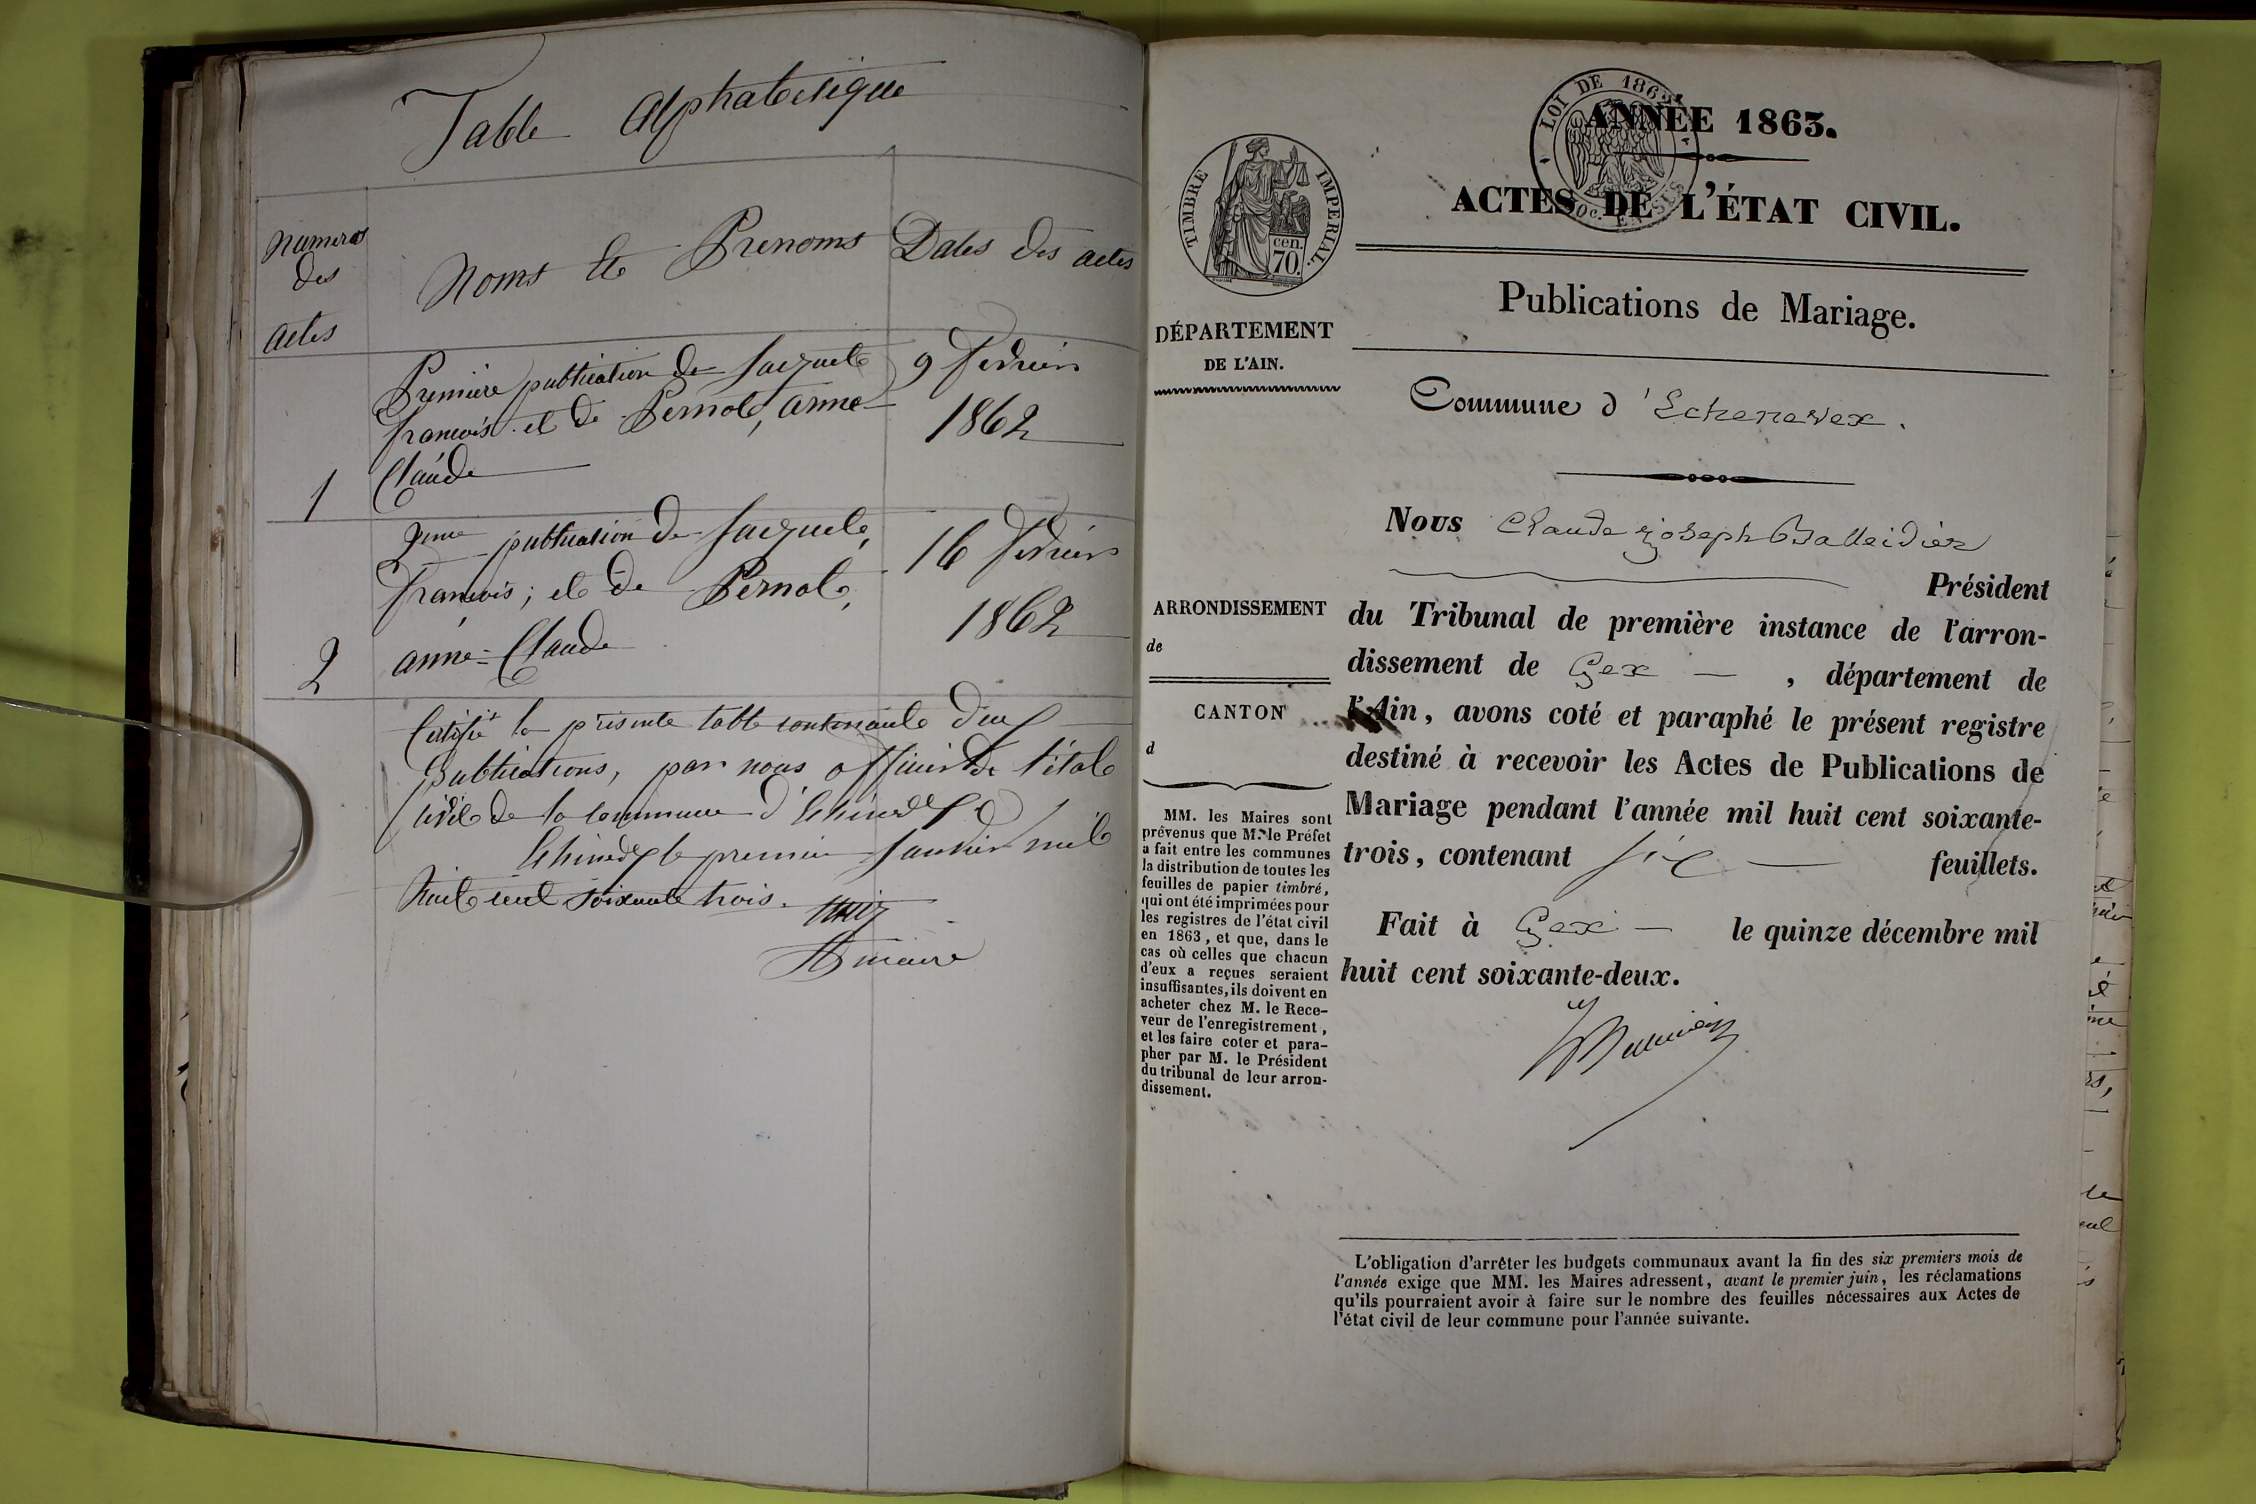 Table Alphabetique
Numeros
des
actes
Noms et Prenoms
Dates des actes
Première publication de Jacquet
françois et de Pernot, anne
Claude
1
9 fevrier
1862
2eme publication de Jacquet,
françois, et de Pernot,
anne-Claude
2
16 fevrier
1862
Certifié la présente table contenant deux
publications, par nous officier de l'état
civil de la commune d'Echenevex
Echenevex le premier Janvier mil
huit cent soixante trois.
maire
LOI DE 1862
ANNÉE 1863.
ACTES DE L'ÉTAT CIVIL.
Publications de Mariage.
Commune d'Echenevex.
TIMBRE IMPERIAL.
cen.
70.
DÉPARTEMENT
DE L'AIN.
ARRONDISSEMENT
de
CANTON
d
MM. les Maires sont
prévenus que M. le Préfet
a fait entre les communes
la distribution de toutes les
feuilles de papier timbré,
qui ont été imprimées pour
les registres de l'état civil
en 1863, et que, dans le
cas où celles que chacun
d'eux a reçues seraient
insuffisantes, ils doivent en
acheter chez M. le Rece-
veur de l'enregistrement,
et les faire coter et para-
pher par M. le Président
du tribunal de leur arron-
dissement.
Nous Claude joseph Balleidier
Président
du Tribunal de première instance de l'arron-
dissement de Gex — , département de
l'Ain, avons coté et paraphé le présent registre
destiné à recevoir les Actes de Publications de
Mariage pendant l'année mil huit cent soixante-
trois, contenant six — feuillets.
Fait à Gex — le quinze décembre mil
huit cent soixante-deux.
L'obligation d'arrêter les budgets communaux avant la fin des six premiers mois de
l'année exige que MM. les Maires adressent, avant le premier juin, les réclamations
qu'ils pourraient avoir à faire sur le nombre des feuilles nécessaires aux Actes de
l'état civil de leur commune pour l'année suivante.